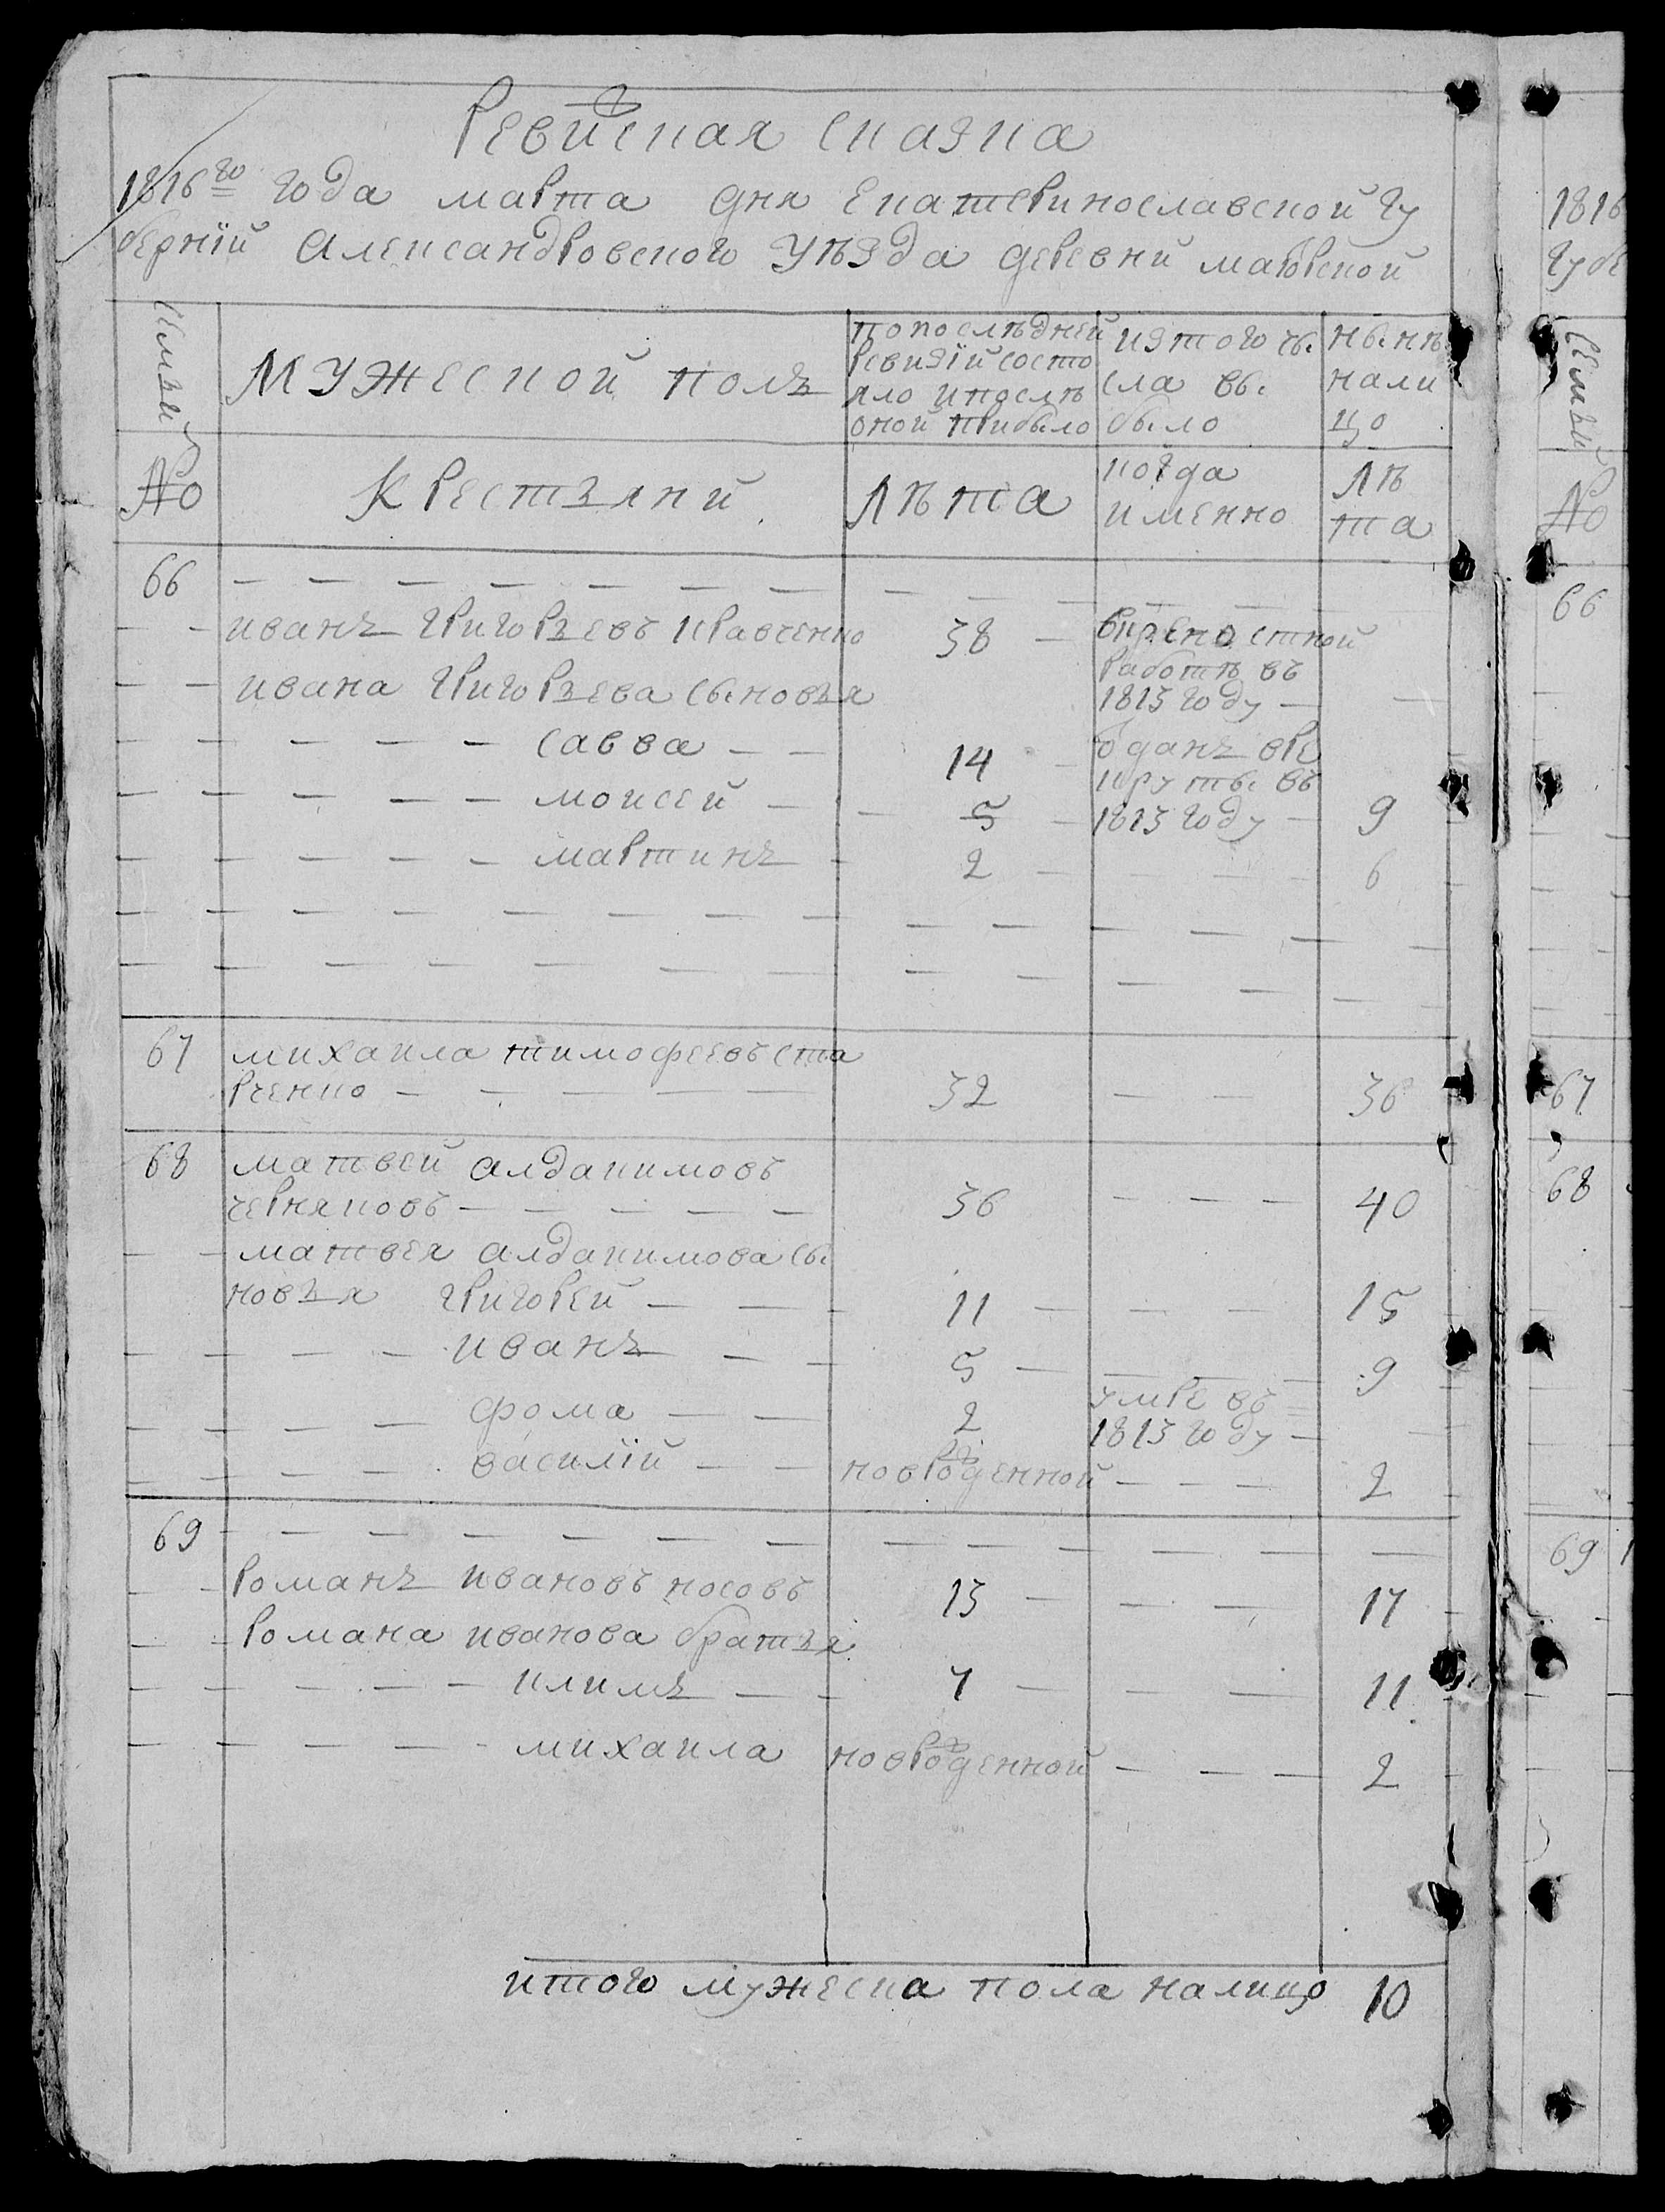 Ревизская сказка
1816го года марта дня Екатеринославской гу
бернїй Александровского уѣзда деревни маюрской
Семьи
мужеской полъ
по послѣдней
ревизїй состо
яло и послѣ
оной прибыло
из того чы
сла вы
было
нынѣ
нали
цо
№
крестьяни
лѣта
когда
именно
лѣ
та
66
иванъ григорьевъ кравченко
38
в крепостной
работѣ въ
1813 году
ивана григорьева сыновья
савва
14
отданъ в ре
круты въ
1813 году
моисей
5
9
мартинъ
2
6
67
михаила тимофеевъ ста
рченко
32
36
68
матвей алдакимовъ
черняковъ
36
40
матвея алдакимова сы
новья григорей
11
15
иванъ
5
9
фома
2
умре въ
1813 году
василїй
новорожденной
2
69
романъ ивановъ носовъ
13
17
романа иванова братья
климъ
7
11
михаила
новорожденной
2
итого мужеска пола налицо 10
1816
губе
Семьи
№
66
67
68
69